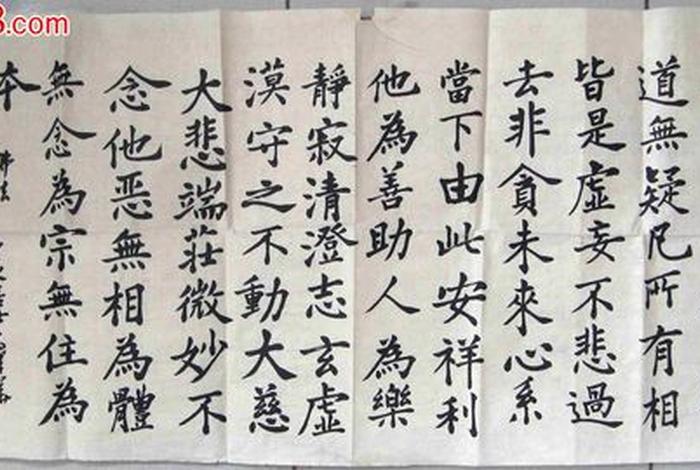 道無疑凡所有相
皆是虛妄不悲過
去非貪未來心系
當下由此安祥利
他為善助人為樂
靜寂清澄志玄虛
漠守之不動大慈
大悲端莊微妙不
念他恶無相為體
無念為宗無住為
本
8.com